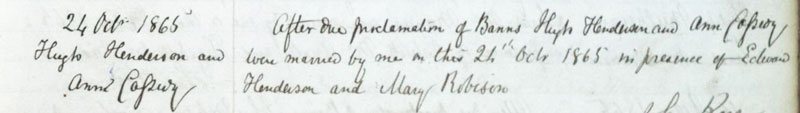 24 Octr 1865
Hugh Henderson and
Anne Cassidy
After due proclamation of Banns Hugh Henderson and Ann Cassidy
were married by me on this 24th Octr 1865 in presence of Edward
Henderson and Mary Robison